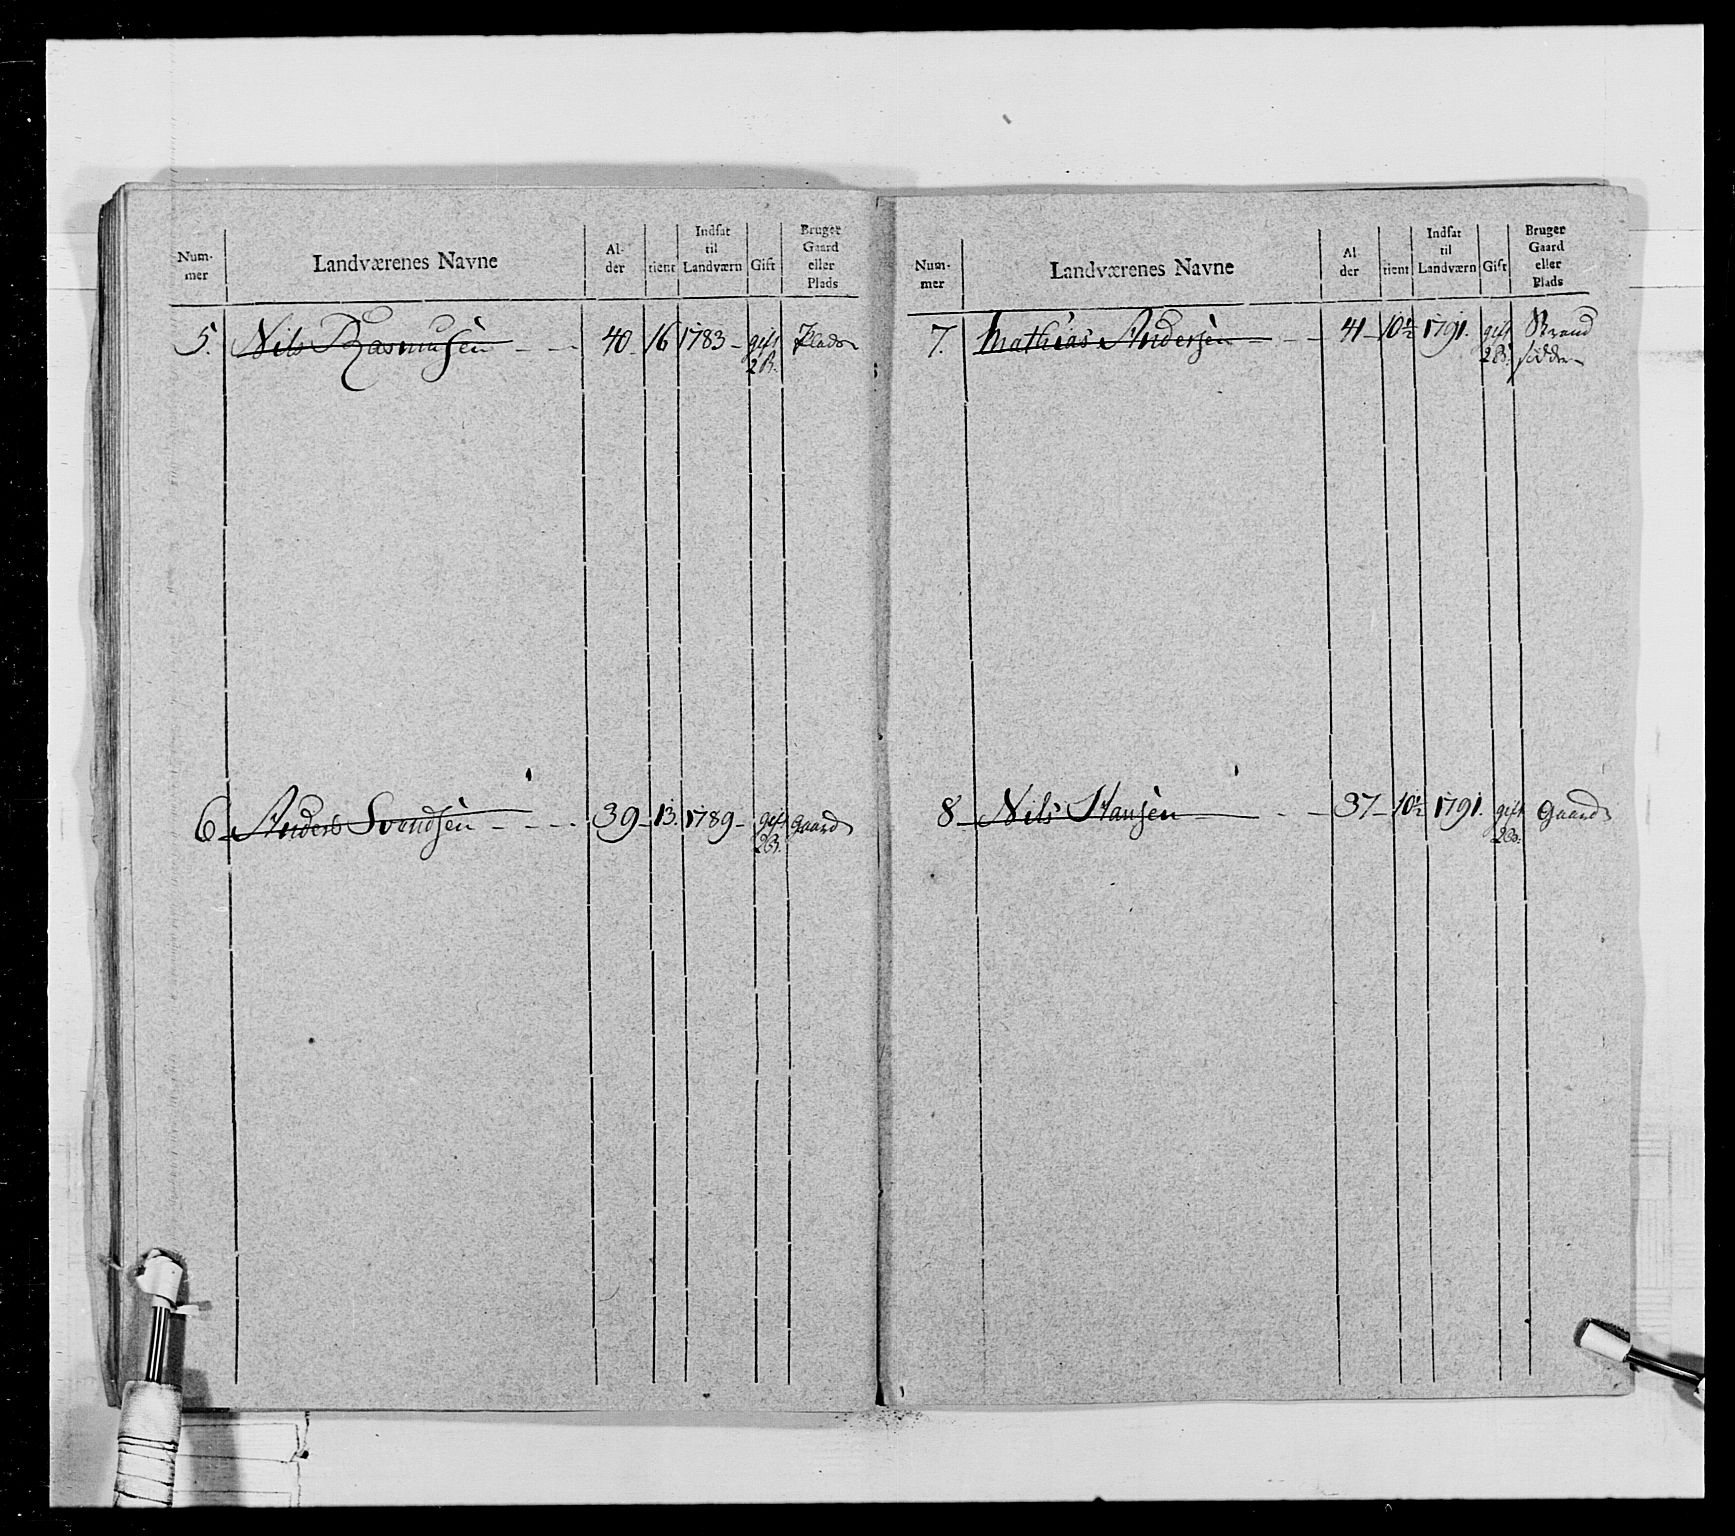 Num-
mer
Landværenes Navne
Al-
der
tient
Indsat
til
Landværn
Gift
Bruger
Gaard
eller
Plads
5. Nils Rasmusen - - - 40 16 1783 - gift Plads
2 B.
6 Anders Svendsen - - - - 39 - 13. 1789 - gift Gaard
2 B.
Num-
mer
Landværenes Navne
Al
der
tient
Indsat
til
Landværn
Gift
Bruger
Gaard
eller
Plads
7. Mathias Andersen - - 41 - 10½ 1791. gift Strand
2 B. sidder
8 - Nils Hansen - - 37 - 10½ 1791. gift Gaard
2 B.